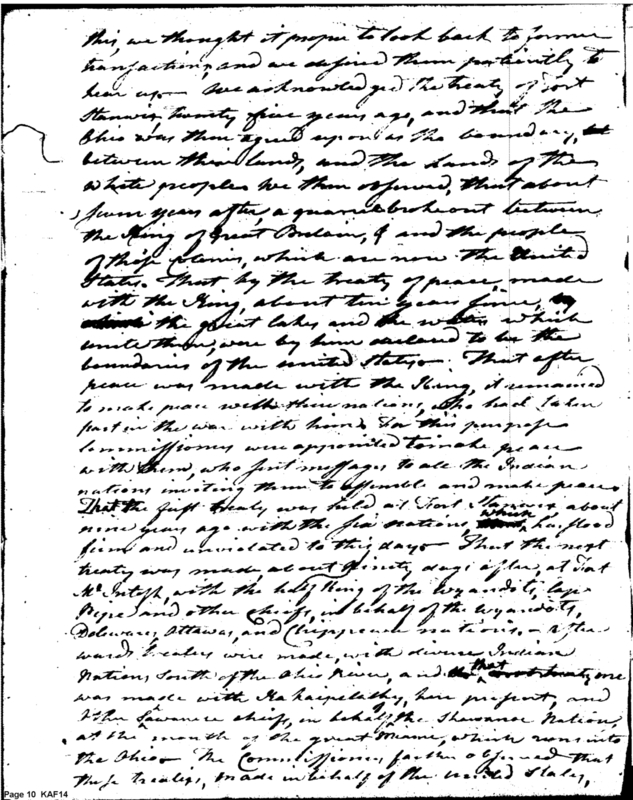 this, we thought it proper to look back to former
transactions, and we desired them patiently to
hear us. We acknowledged the treaty of Fort
Stanwix twenty five years ago, and that the
Ohio was then agreed upon as the boundary,
between these lands, and the Lands of the
white people. We then observed, that about
seven years after, a quarrel broke out between
the King of Great Britain, & and the people
of those Colonies, which are now the United
States. That by the treaty of peace, made
with the King, about ten years since,
the great lakes and the waters which
unite them, were by him declared to be the
boundaries of the united States. That after
peace was made with the King, it remained
to make peace with those nations, who had taken
part in the war with him. For this purpose
Commissioners were appointed to make peace
with them, who sent messages to all the Indian
nations inviting them to assemble and make peace.
That the first treaty was held at Fort Stanwix about
nine years ago with the six nations, which has stood
firm and unviolated to this day. That the next
treaty was made about Ninety days after, at Fort
McIntosh, with the half King of the Wyandots, Cap
Pipe and other chiefs, in behalf of the Wyandots,
Delaware, Ottawa, and Chippeewa nations. After
wards treaties were made, with diverse Indian
Nations South of the Ohio River, and that one
was made with Kakaipalathy, here present, and
other Shawanee chiefs, in behalf of the Shawanoe Nation,
at the mouth of the great Miami, which runs into
the Ohio. The Commissioners farther observed that
these treaties, made in behalf of the united States,
Page 10 KAF14